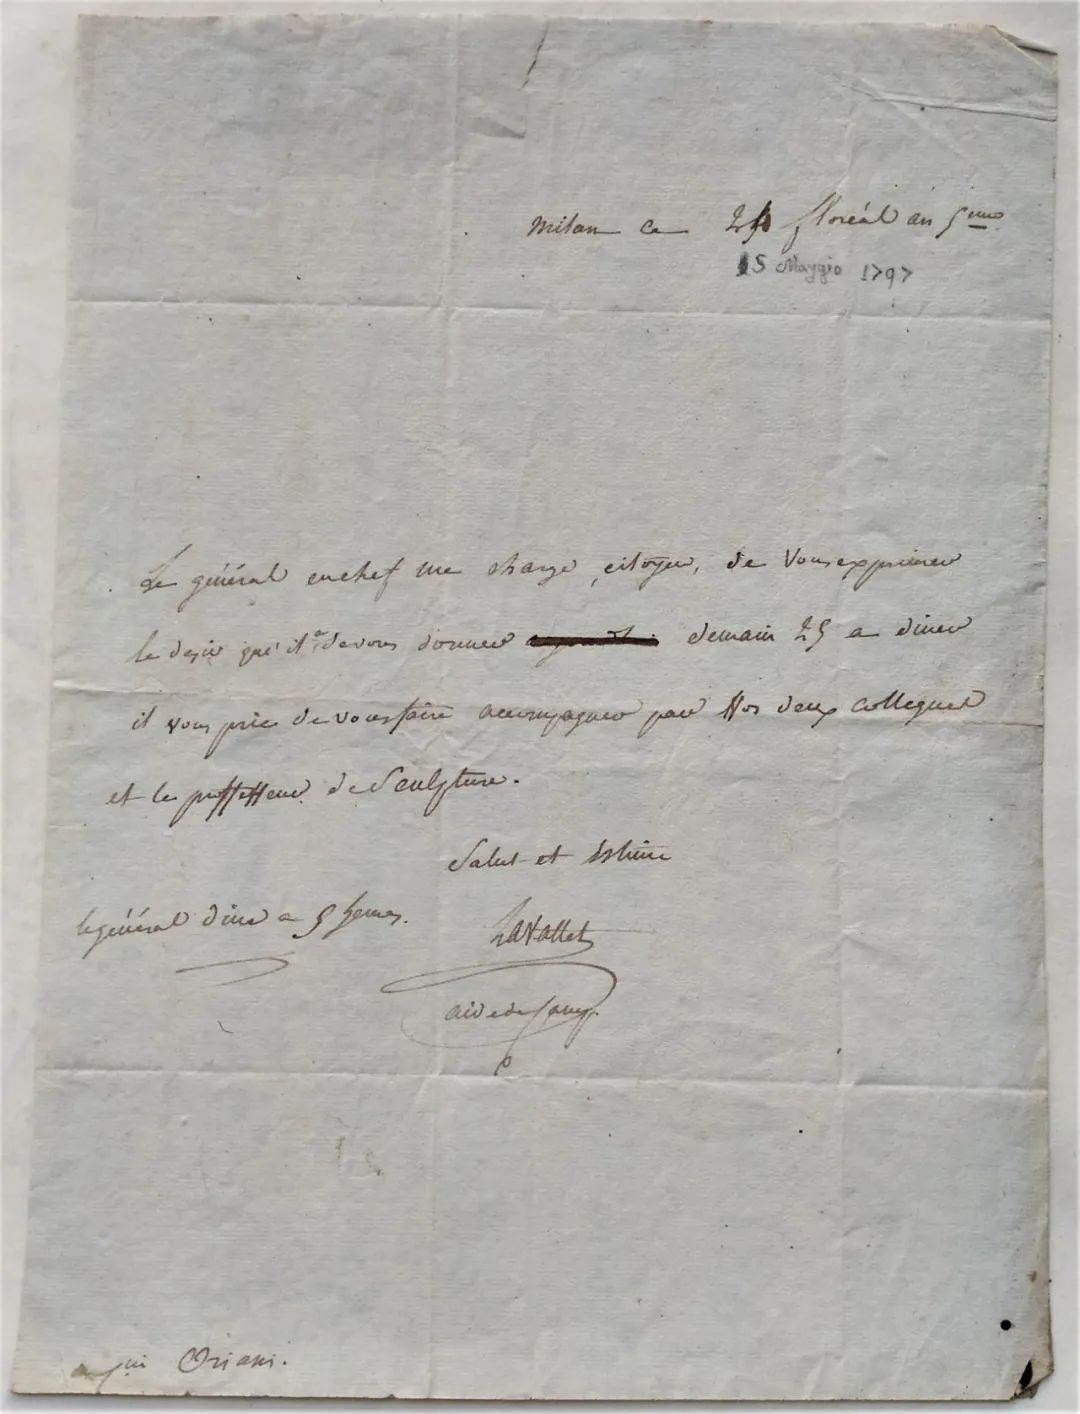 Milan ce floréal an 5eme
15 Maggio 1797
Le général en chef me charge, citoyen, de vous exprimer
le desir qu'il a de vous donner demain 25 a diner
il vous prie de vous faire accompagner par Nos deux collegues
et le proffesseur de Sculpture.
Salut et Estime
le général dine a 5 heures.
Lavallet
aide de camp
Oriani.